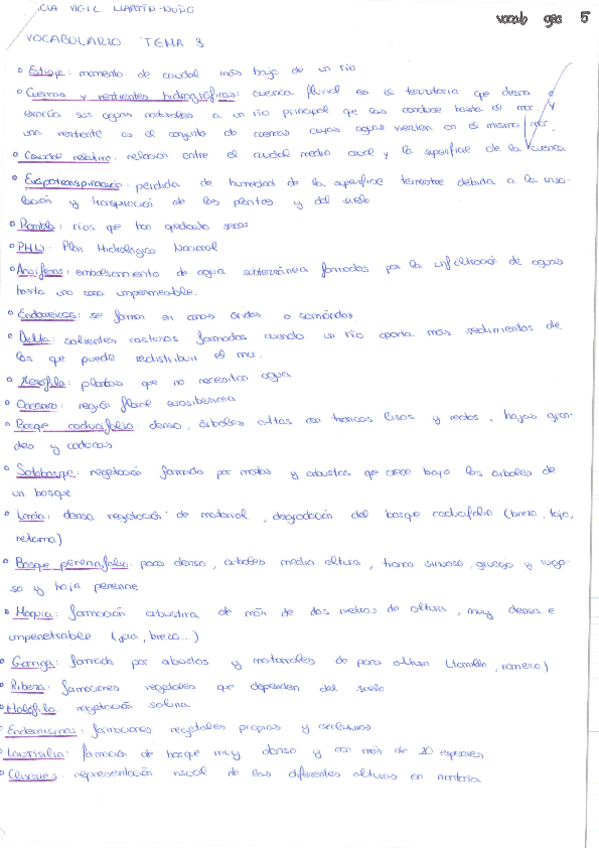 VIGIL MARTÍN-NUÑO
vocab geo 5
VOCABULARIO TEMA 3
Estiaje: momento de caudal más bajo de un río
Cuencas y vertientes hidrográficas: cuenca fluvial es el territorio que drena
sus aguas naturales a un río principal que las conduce hasta el mar. y
una vertiente es el conjunto de cuencas cuyas aguas vierten en el mismo mar.
Caudal relativo: relación entre el caudal medio anual y la superficie de la cuenca
Evapotranspiración: pérdida de humedad de la superficie terrestre debida a la inso-
lación y transpiración de las plantas y del suelo
Rambla: ríos que han quedado secos
PHN: Plan Hidrológico Nacional
Acuíferos: embalsamiento de agua subterránea formados por la infiltración de aguas
hasta una zona impermeable.
Endorreicas: se forman en zonas áridas o semiáridas
Delta: salientes costeros formados cuando un río aporta más sedimentos de
los que puede redistribuir el mar.
Xerófila: plantas que no necesitan agua
región floral eurosiberiana
Bosque caducifolio: denso, árboles altos con troncos lisos y rectos, hojas gran-
des y caducas
Sotobosque: vegetación formada por matas y arbustos que crece bajo los árboles de
un bosque
Landa: densa vegetación de matorral, degradación del bosque caducifolio (brezo, tojo,
retama)
Bosque perennifolio: poco denso, árboles media altura, tronco sinuoso, grueso y rugo-
so y hoja perenne
Maquia: formación arbustiva de más de dos metros de altura, muy densa e
impenetrable (jara, brezo...)
Garriga: formada por arbustos y matorrales de poca altura (tomillo, romero)
Ribera: formaciones vegetales que dependen del suelo
Halófila: vegetación salina
Endemismos: formaciones vegetales propias y exclusivas
Laurisilva: formación de bosque muy denso y con más de 20 especies
Cliseries: representación visual de las diferentes alturas en montaña